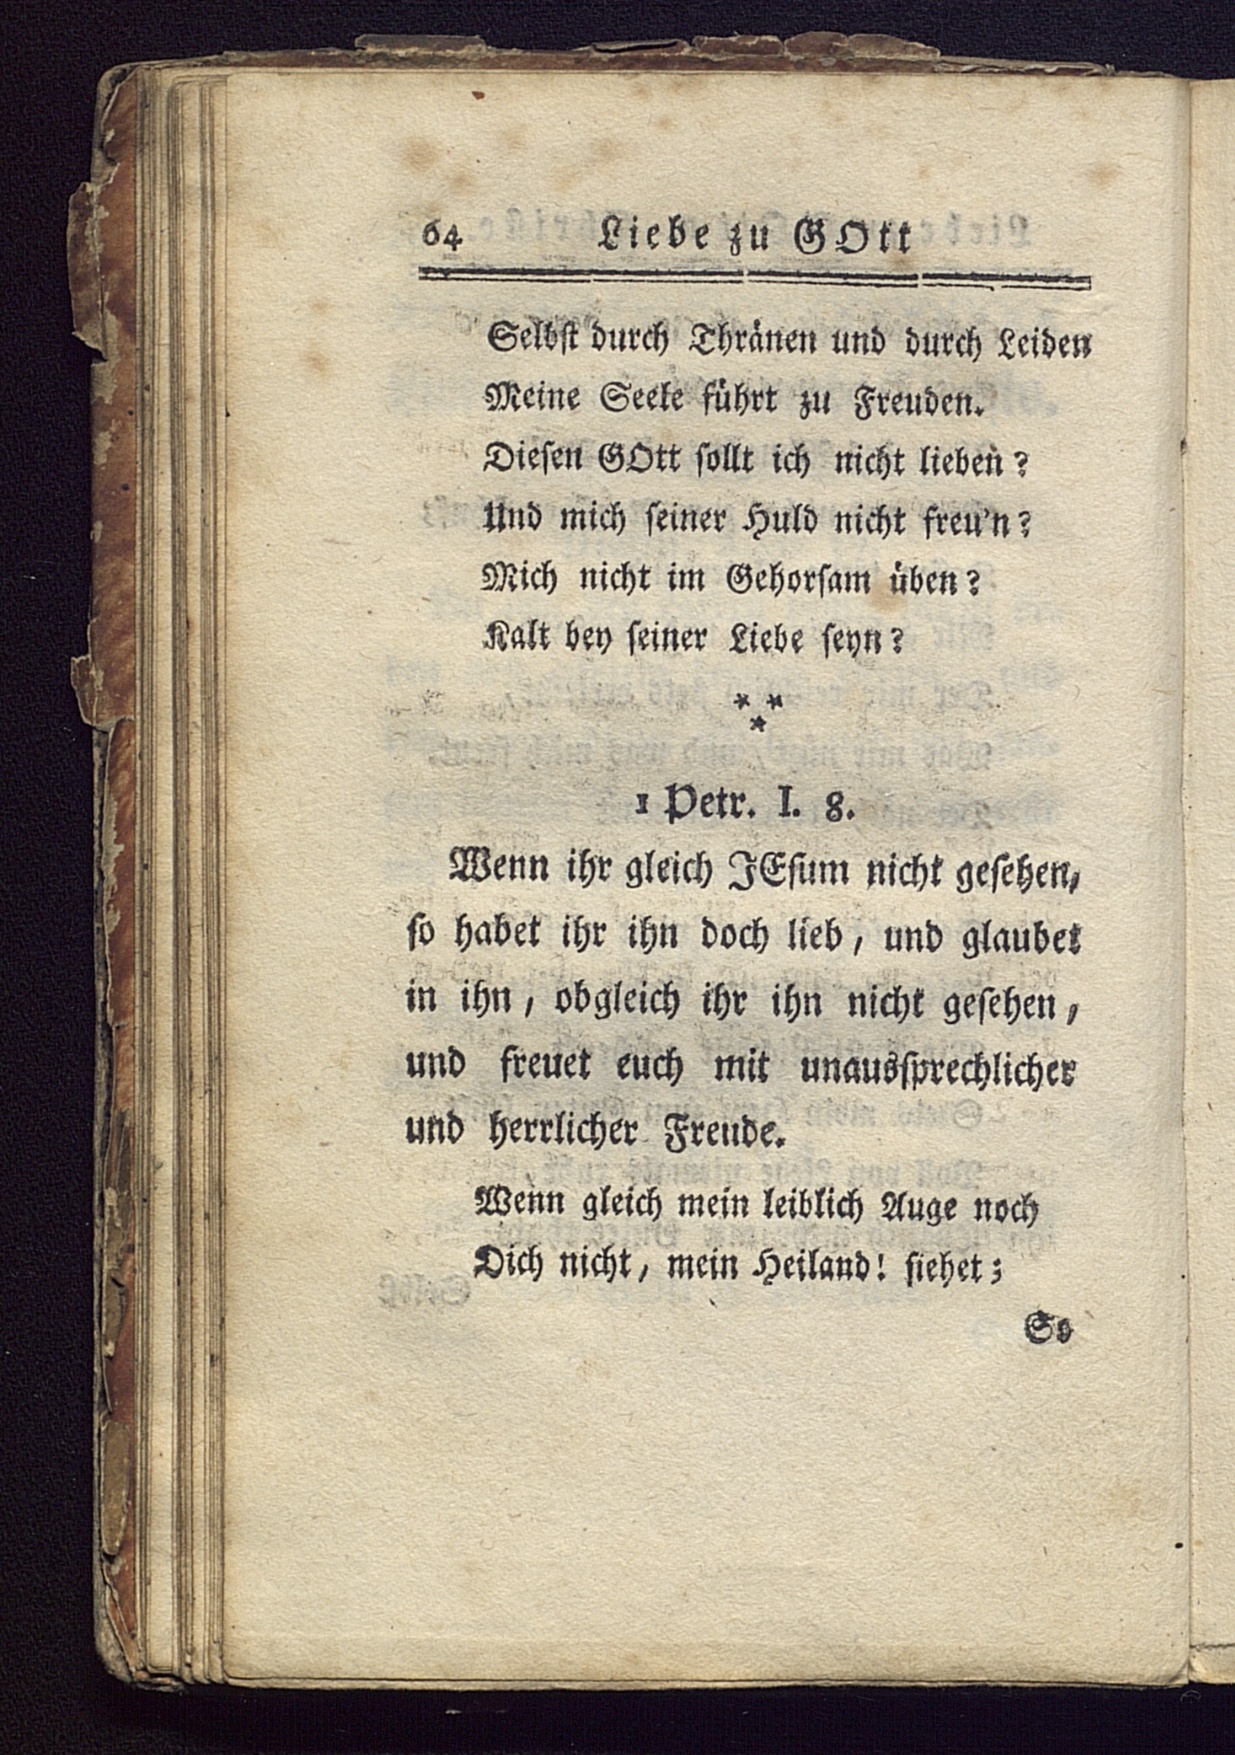 64 Liebe zu GOtt
Selbst durch Thränen und durch Leiden
Meine Seele führt zu Freuden.
Diesen GOtt sollt ich nicht lieben?
Und mich seiner Huld nicht freu'n?
Mich nicht im Gehorsam üben?
Kalt bey seiner Liebe seyn?
* *
*
1 Petr. I. 8.
Wenn ihr gleich JEsum nicht gesehen,
so habet ihr ihn doch lieb, und glaubet
in ihn, obgleich ihr ihn nicht gesehen,
und freuet euch mit unaussprechlicher
und herrlicher Freude.
Wenn gleich mein leiblich Auge noch
Dich nicht, mein Heiland! siehet;
So